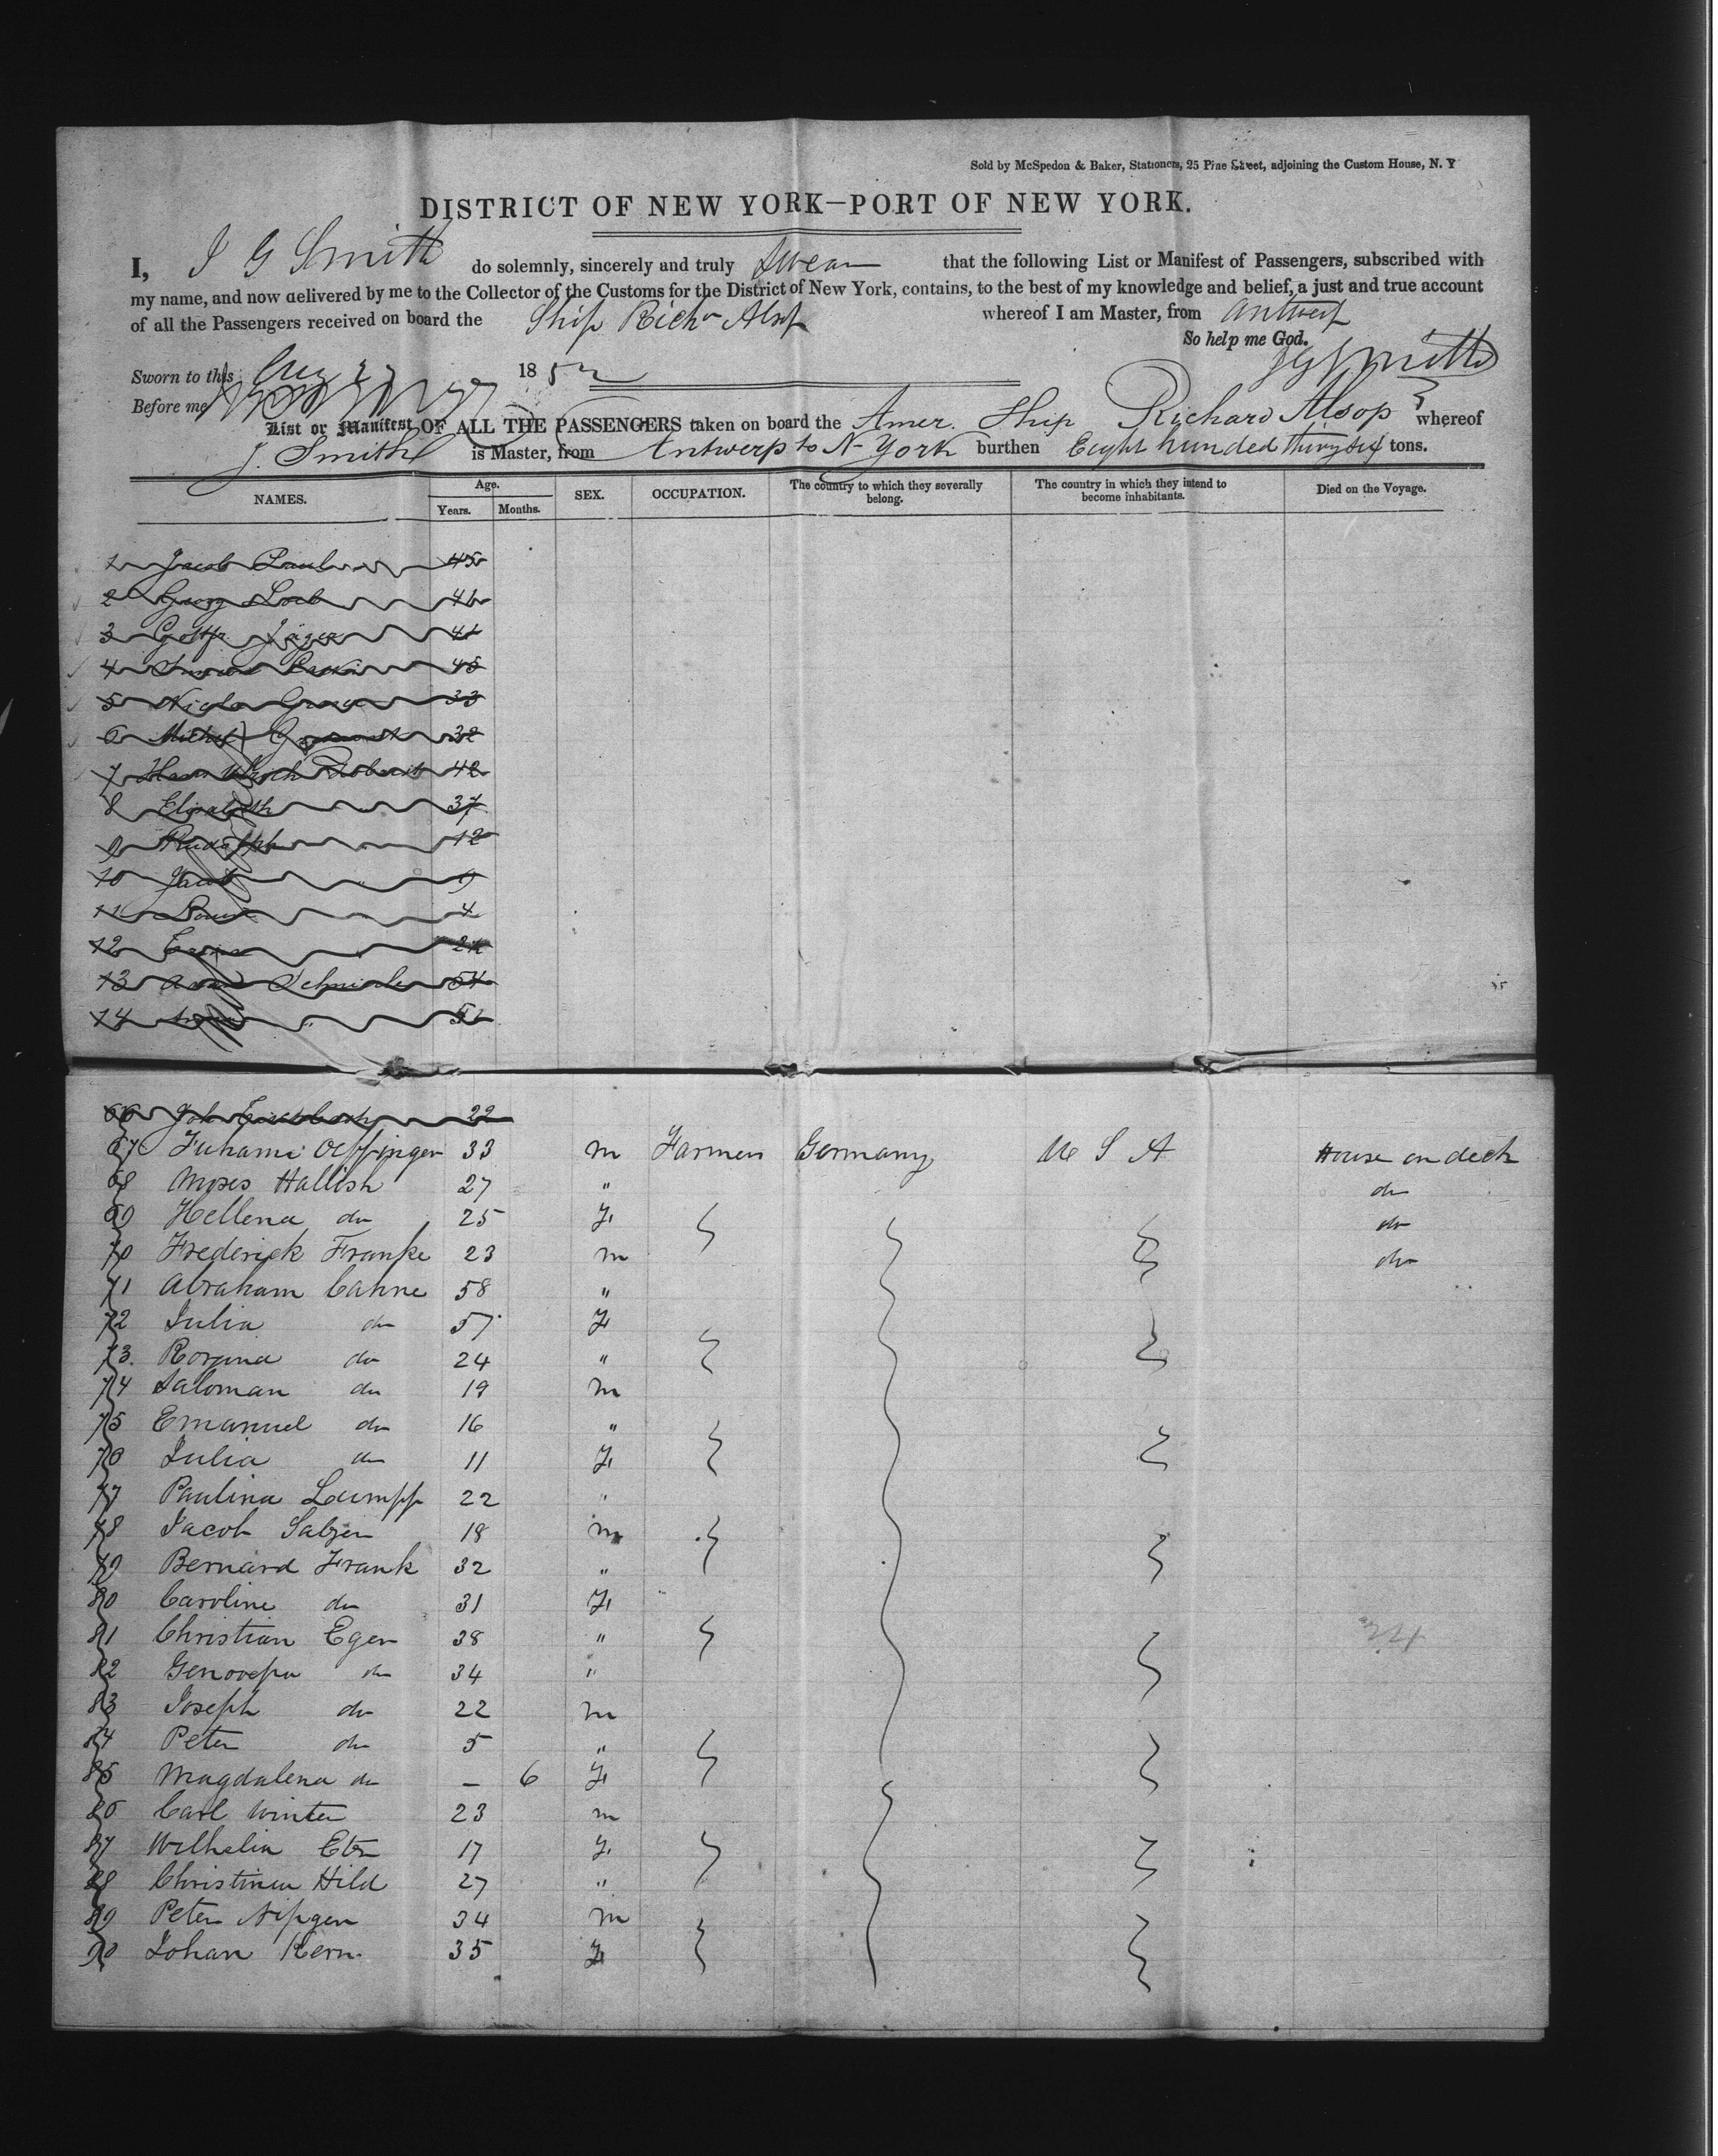 Sold by McSpedon & Baker, Stationers, 25 Pine Street, adjoining the Custom House, N. Y
DISTRICT OF NEW YORK—PORT OF NEW YORK.
I, J G Smith do solemnly, sincerely and truly Swear that the following List or Manifest of Passengers, subscribed with
my name, and now delivered by me to the Collector of the Customs for the District of New York, contains, to the best of my knowledge and belief, a just and true account
of all the Passengers received on board the Ship Richd Alsop whereof I am Master, from Antwerp
So help me God.
J G Smith
Sworn to this Aug 27 1852
Before me
List or Manifest OF ALL THE PASSENGERS taken on board the Amer. Ship Richard Alsop whereof
J. Smith is Master, from Antwerp to N-York burthen Eight hundred thirty six tons.
NAMES. Age. Years. Months. SEX. OCCUPATION. The country to which they severally belong. The country in which they intend to become inhabitants. Died on the Voyage.
1 Jacob 45
2 Georg 46
3 Gottfr. Jäger 41
4 45
5 33
6 32
7 42
8 Elisabeth " 37
9 Rudolph " 12
10 Jacob " 9
11 " 4
12 "
13 54
14 "
66 22
67 33 m Farmers Germany U S A House on deck
68 Moses Hallish 27 " do
69 Hellena do 25 F do
70 Frederick Franke 23 m do
71 Abraham Cahne 58 "
72 Julia do 57 F
73. Rosina do 24 "
74 Saloman do 19 m
75 Emanuel do 16 "
76 Julia do 11 F
77 Paulina Lumpp 22 "
78 Jacob Salzer 18 m
79 Bernard Frank 32 "
80 Caroline do 31 F
81 Christian Eger 38 "
82 Genovefa do 34 "
83 Joseph do 22 m
84 Peter do 5 "
85 Magdalena do — 6 F
86 Carl Winter 23 m
87 Wilhelm 17 F
88 Christina Hild 27 "
89 Peter Nipgen 34 m
90 Johan Kern. 35 F